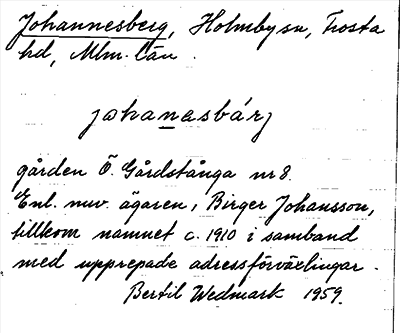 Johannesberg, Holmby sn, Frosta
hd, Mlm. län.
johanesbárj
gården Ö. Gårdstånga nr 8.
Enl. nuv. ägaren, Birger Johansson,
tillkom namnet c. 1910 i samband
med upprepade adressförväxlingar.
Bertil Wedmark 1959.